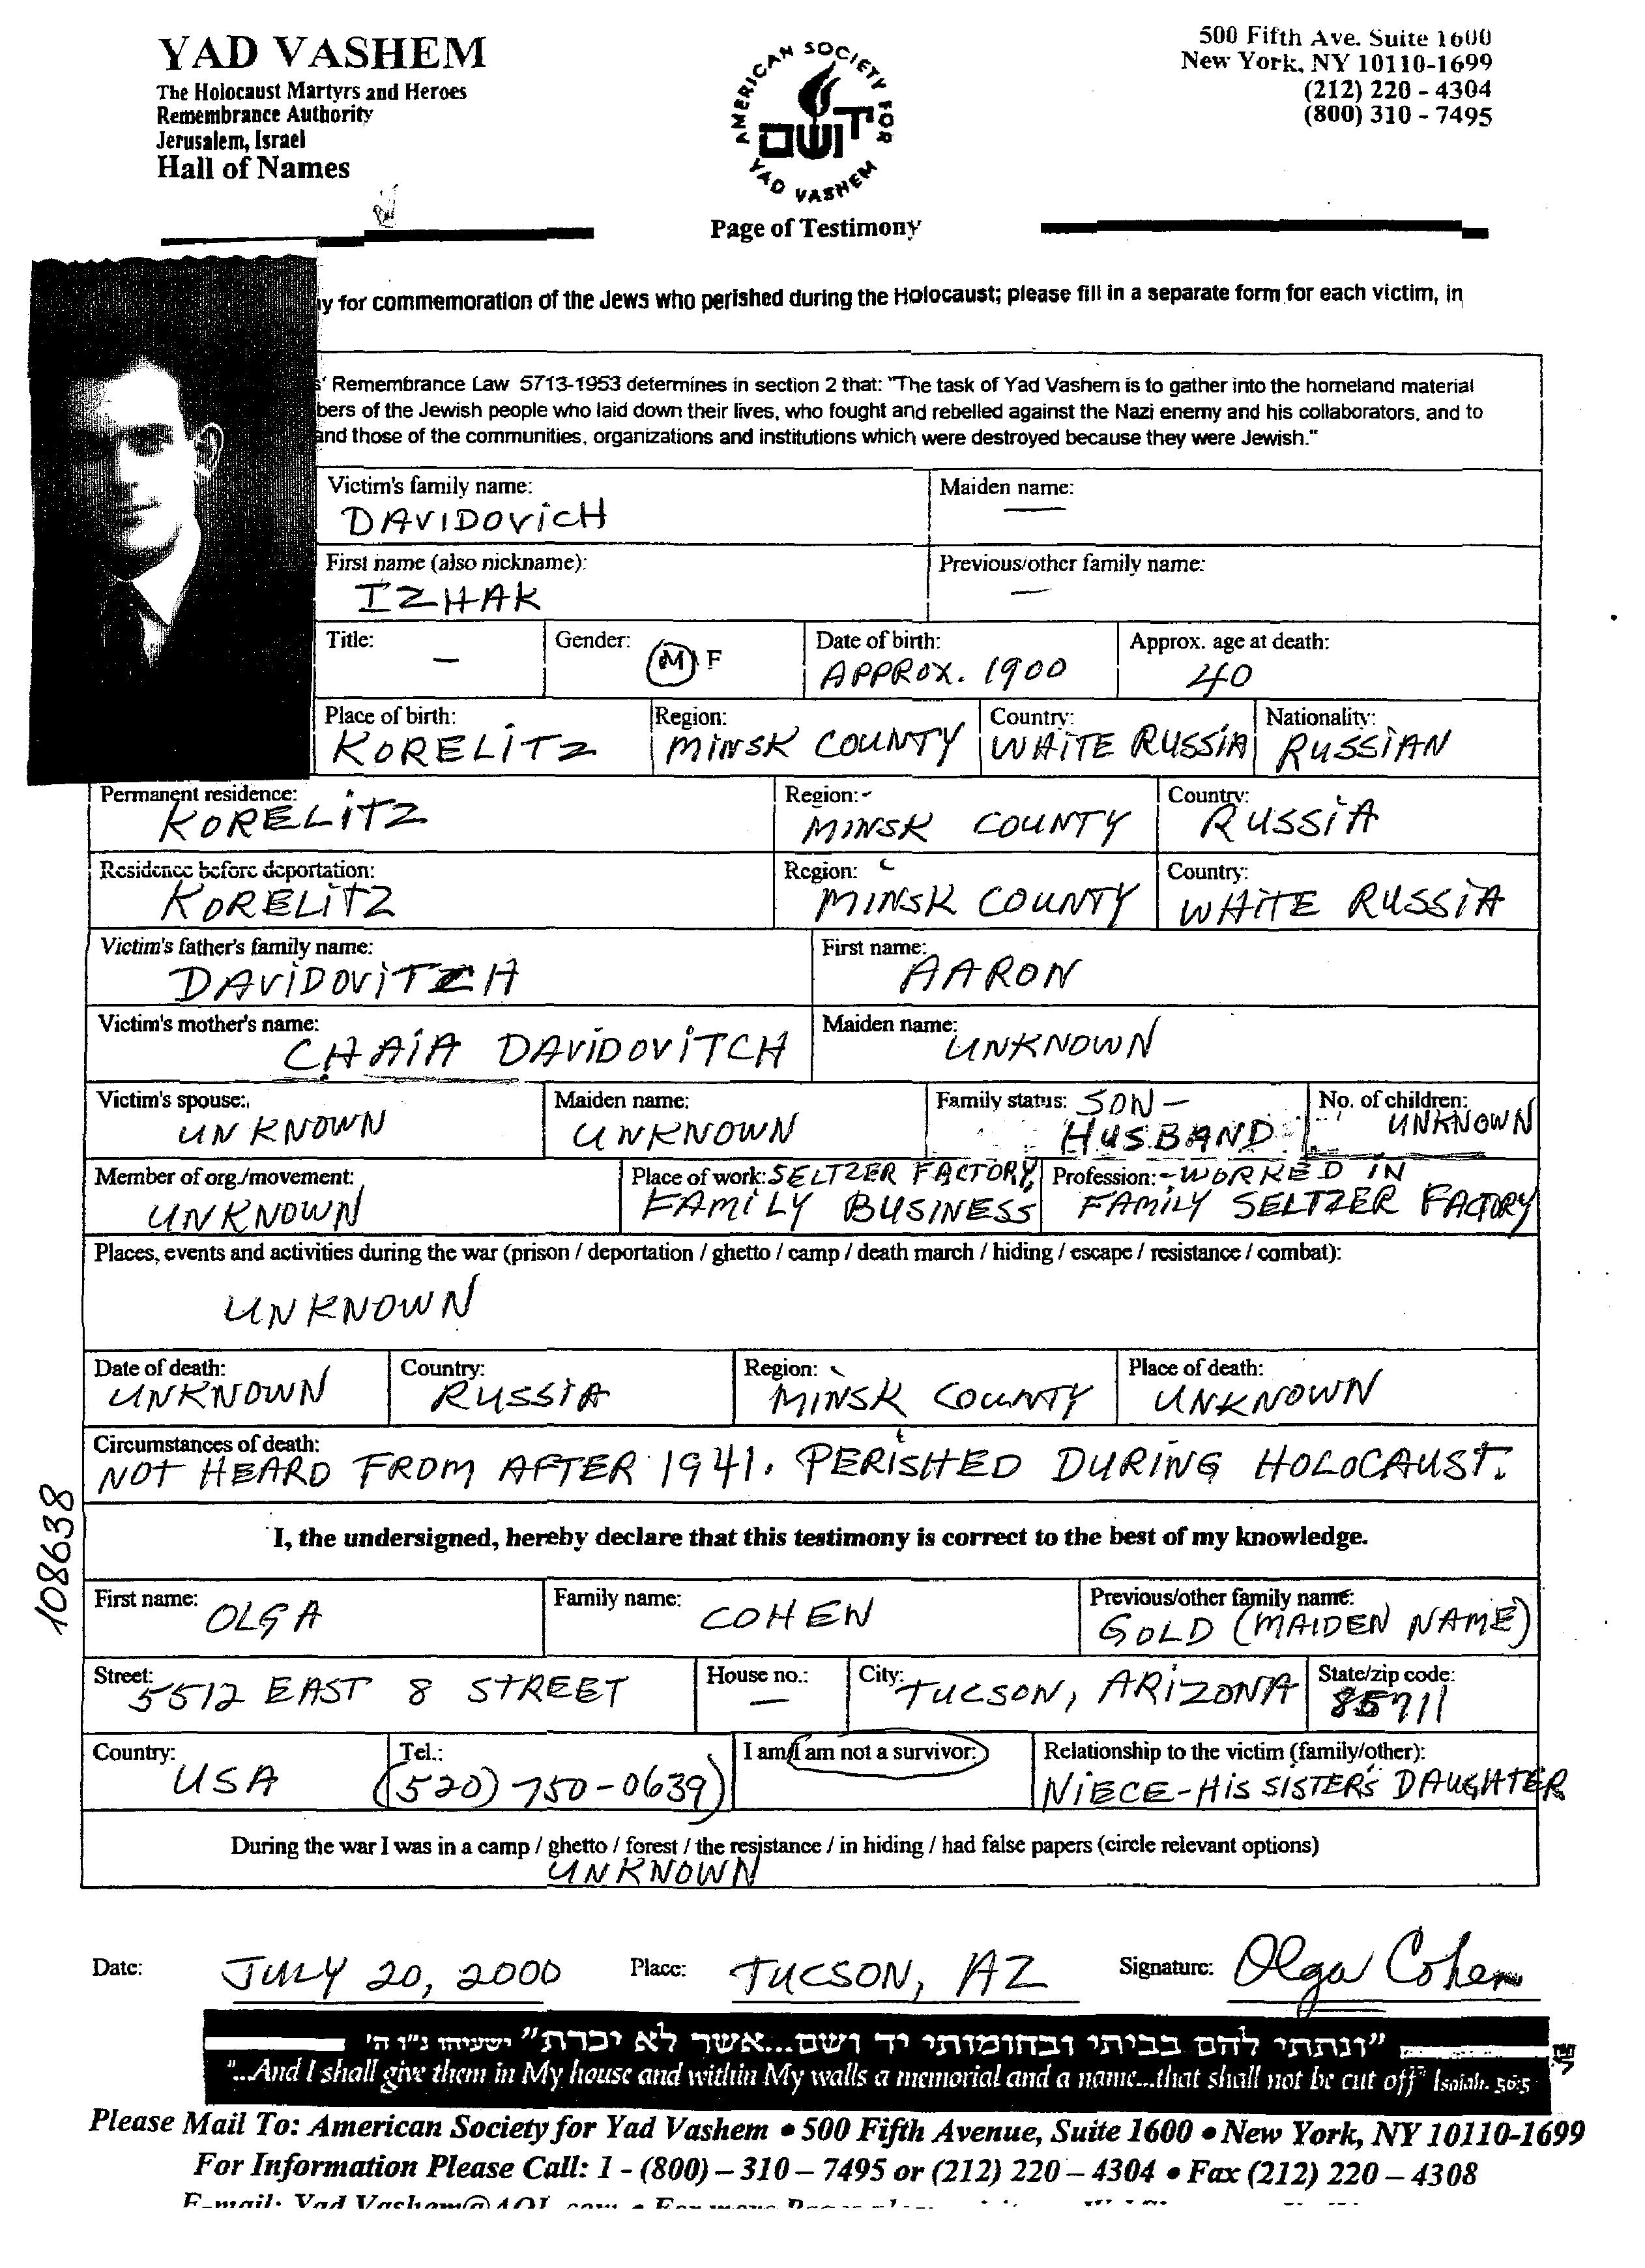 YAD VASHEM
The Holocaust Martyrs and Heroes
Remembrance Authority
Jerusalem, Israel
Hall of Names
AMERICAN SOCIETY FOR
יד ושם
YAD VASHEM
Page of Testimony
500 Fifth Ave. Suite 1600
New York, NY 10110-1699
(212) 220 - 4304
(800) 310 - 7495
y for commemoration of the Jews who perished during the Holocaust; please fill in a separate form for each victim, in
s' Remembrance Law 5713-1953 determines in section 2 that: "The task of Yad Vashem is to gather into the homeland material
bers of the Jewish people who laid down their lives, who fought and rebelled against the Nazi enemy and his collaborators, and to
and those of the communities, organizations and institutions which were destroyed because they were Jewish."
Victim's family name: Maiden name:
DAVIDOVICH —
First name (also nickname): Previous/other family name:
IZHAK —
Title: Gender: Date of birth: Approx. age at death:
— M F APPROX. 1900 40
Place of birth: Region: Country: Nationality:
KORELITZ MINSK COUNTY WHITE RUSSIA RUSSIAN
Permanent residence: Region: Country:
KORELITZ MINSK COUNTY RUSSIA
Residence before deportation: Region: Country:
KORELITZ MINSK COUNTY WHITE RUSSIA
Victim's father's family name: First name:
DAVIDOVITCH AARON
Victim's mother's name: Maiden name:
CHAIA DAVIDOVITCH UNKNOWN
Victim's spouse: Maiden name: Family status: SON - No. of children:
UNKNOWN UNKNOWN HUSBAND UNKNOWN
Member of org./movement: Place of work: SELTZER FACTORY Profession: - WORKED IN
UNKNOWN FAMILY BUSINESS FAMILY SELTZER FACTORY
Places, events and activities during the war (prison / deportation / ghetto / camp / death march / hiding / escape / resistance / combat):
UNKNOWN
Date of death: Country: Region: Place of death:
UNKNOWN RUSSIA MINSK COUNTY UNKNOWN
Circumstances of death:
NOT HEARD FROM AFTER 1941. PERISHED DURING HOLOCAUST.
108638
I, the undersigned, hereby declare that this testimony is correct to the best of my knowledge.
First name: Family name: Previous/other family name:
OLGA COHEN GOLD (MAIDEN NAME)
Street: House no.: City: State/zip code:
5512 EAST 8 STREET — TUCSON, ARIZONA 85711
Country: Tel.: I am/I am not a survivor: Relationship to the victim (family/other):
USA (520) 750-0639 NIECE-HIS SISTER'S DAUGHTER
During the war I was in a camp / ghetto / forest / the resistance / in hiding / had false papers (circle relevant options)
UNKNOWN
Date: JULY 20, 2000 Place: TUCSON, AZ Signature: Olga Cohen
"ונתתי להם בביתי ובחומותי יד ושם...אשר לא יכרת" ישעיהו נ"ו ה'
"...And I shall give them in My house and within My walls a memorial and a name...that shall not be cut off" Isaiah. 56:5
Please Mail To: American Society for Yad Vashem • 500 Fifth Avenue, Suite 1600 • New York, NY 10110-1699
For Information Please Call: 1 - (800) – 310 – 7495 or (212) 220 – 4304 • Fax (212) 220 – 4308
E-mail: Yad Vashem@AOL.com